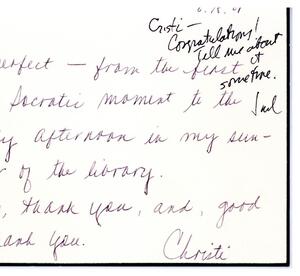 6.15.01
Cristi –
Congratulations!
Tell me about
it
sometime.
erfect – from the first
Socratic moment to the
y afternoon in my sun-
of the library.
, thank you, and, good
ank you.
Christi